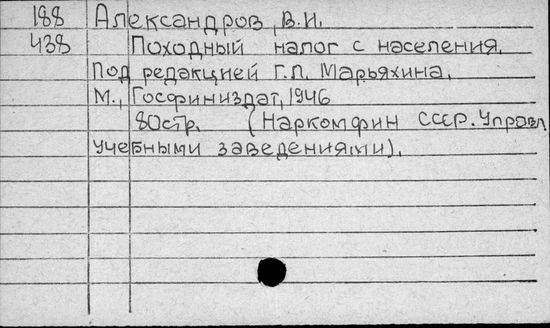 188 Александров, В.И.
438 Походный налог с населения.
Под редакцией Г.Л. Марьяхина.
М., Госфиниздат, 1946
80стр. (Наркомфин СССР. Управл
учебными заведениями).